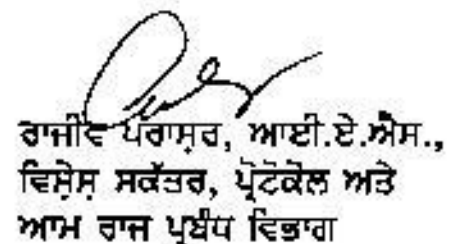 ਰਾਜੀਵ ਪਰਾਸ਼ਰ, ਆਈ.ਏ.ਐਸ.,
ਵਿਸ਼ੇਸ਼ ਸਕੱਤਰ, ਪ੍ਰੋਟੋਕੋਲ ਅਤੇ
ਆਮ ਰਾਜ ਪ੍ਰਬੰਧ ਵਿਭਾਗ